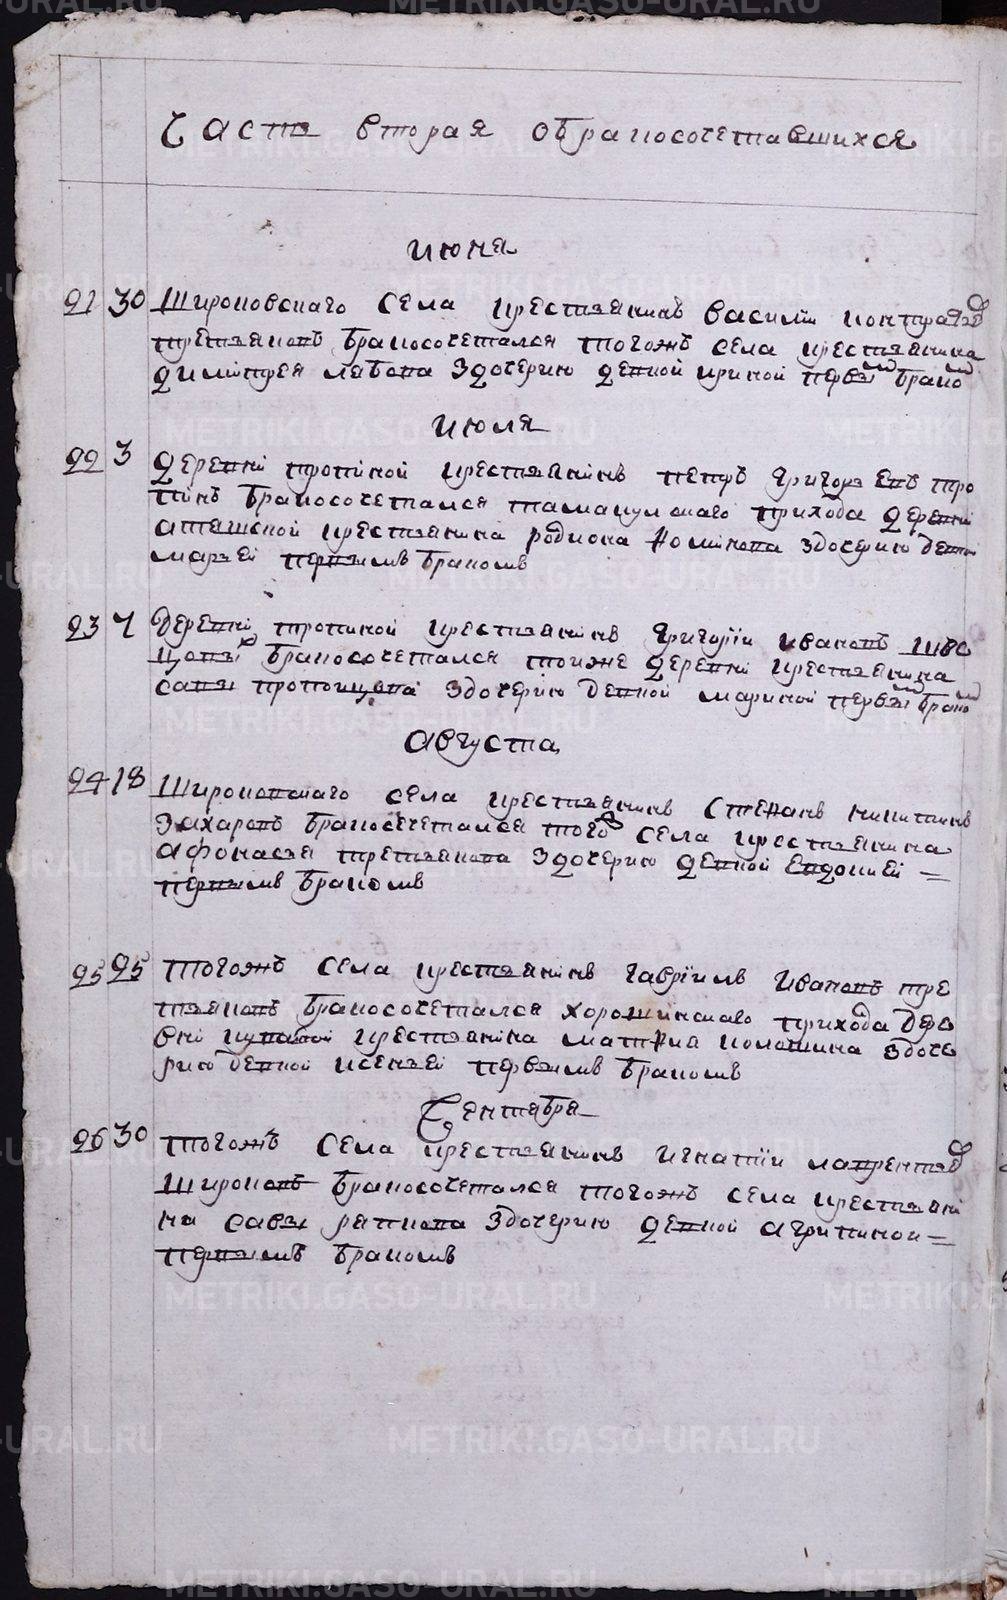 Часть вторая обракосочетавшихся
июня
21 30 Широковскаго села крестьянинъ василии кондратьевъ
третьяковъ бракосочетался тогожъ села крестьянина
димитрея лабова здочерию девкой ириной первымъ бракомъ
июля
22 3 деревни тропиной крестьянинъ петръ григорьевъ тро
пинъ бракосочетался тамакулскаго прихода деревни
крестьянина родиона здочерию девкой
марьей первымъ бракомъ
23 7 деревни тропиной крестьянинъ григории ивановъ шве
цовъ бракосочетался тоиже деревни крестьянина
савы здочерию девкой мариной первымъ бракомъ
августа
24 18 Широковскаго села крестьянинъ Степанъ никитинъ
Захаровъ бракосочетался тогожъ села крестьянина
афонасья третьякова здочерию девкой Евдокией
первымъ бракомъ
25 25 тогожъ села крестьянинъ гавриилъ ивановъ тре
тьяковъ бракосочетался прихода дере
вни крестьянина здоче
рию девкой ксеньей первымъ бракомъ
Сентября
26 30 тогожъ села крестьянинъ игнатии лаврентьевъ
Широковъ бракосочетался тогожъ села крестьяни
на савы здочерию девкой агрипинои
первымъ бракомъ
METRIKI.GASO-URAL.RU